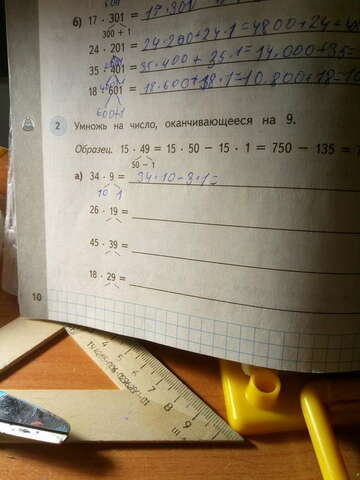 б) 17 · 301 = 17·301
300 + 1
24 · 201 = 24·200+24·1=4800+24=
35 · 401 = 35·400 + 35·1=14.000+35=
18 · 601 = 18·600+18·1=10.800+18=
600+1
2 Умножь на число, оканчивающееся на 9.
Образец. 15 · 49 = 15 · 50 − 15 · 1 = 750 − 135 =
50 − 1
а) 34 · 9 = 34·10−3·1=
10 1
26 · 19 =
45 · 39 =
18 · 29 =
10
4 5 6 7 8 9